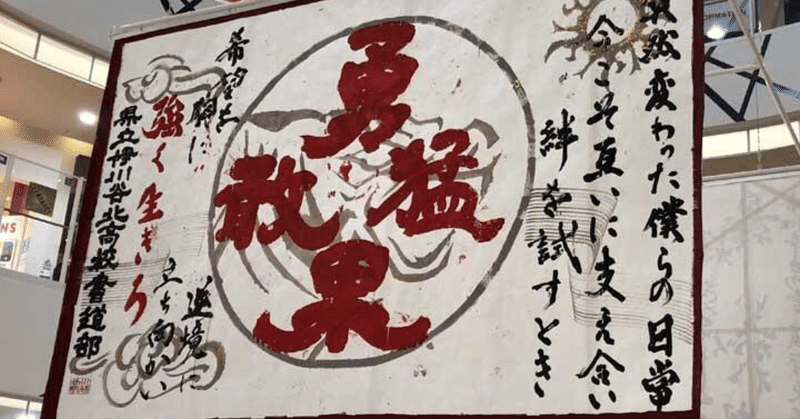 突然変わった僕らの日常
今こそ互いに支え合い
絆を試すとき
勇猛果敢
希望を
胸に
逆境に
立ち向かい
強く生きろ
県立伊川谷北高校書道部